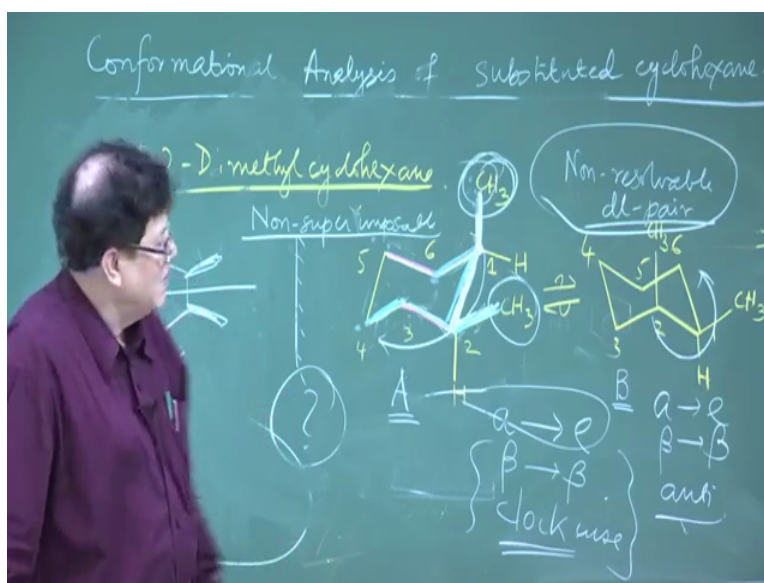 Conformational Analysis of substituted cyclohexane
2-Dimethylcyclohexane
Non-superimposable
Non-resolvable
dl-pair
CH3
5
6
1
H
CH3
4
3
2
H
?
A
a → e
β → β
clockwise
CH3
4
5
6
CH3
3
2
H
B
a → e
β → β
anti